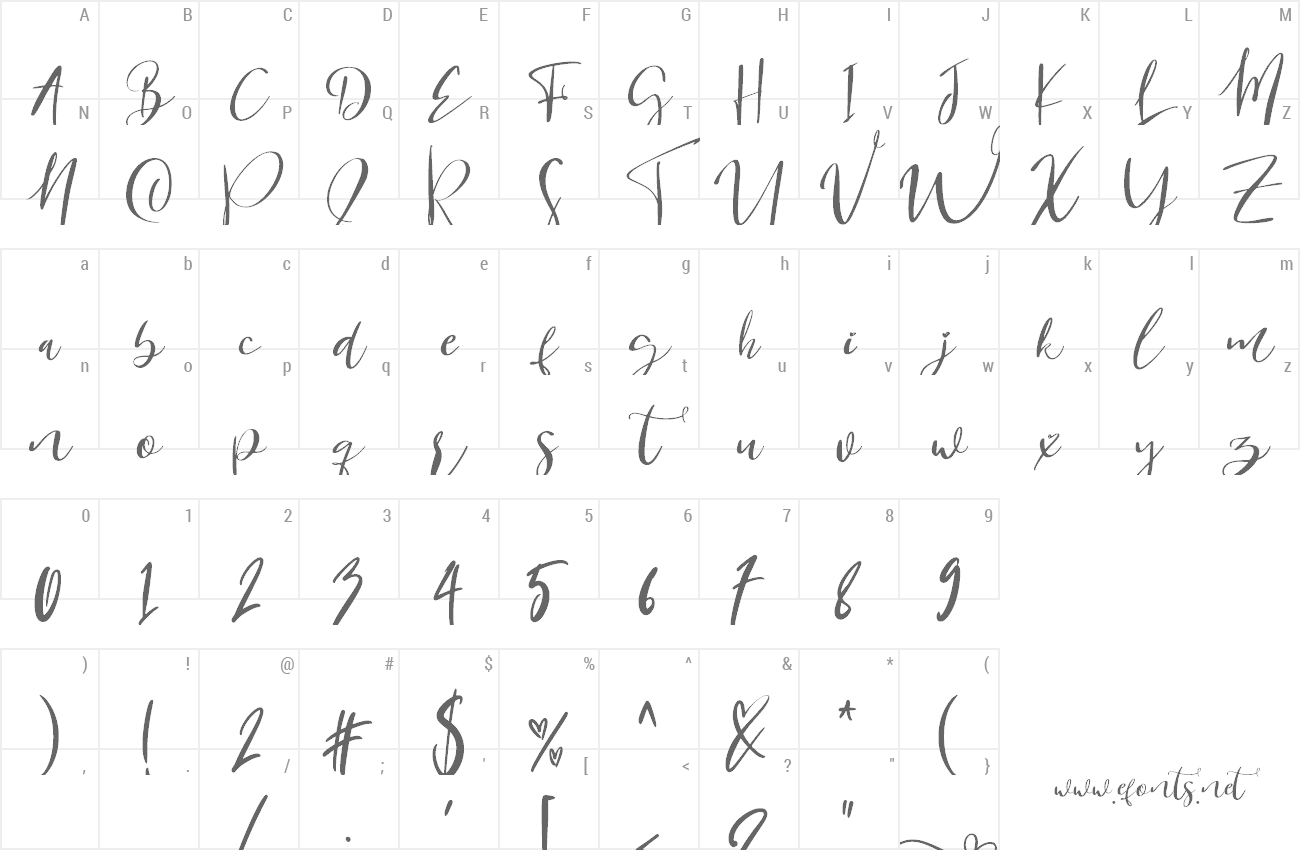 A B C D E F G H I J K L M
A B C D E F G H I J K L M
N O P Q R S T U V W X Y Z
N O P Q R S T U V W X Y Z
a b c d e f g h i j k l m
a b c d e f g h i j k l m
n o p q r s t u v w x y z
n o p q r s t u v w x y z
0 1 2 3 4 5 6 7 8 9
0 1 2 3 4 5 6 7 8 9
) ! @ # $ % ^ & * (
) ! 2 # $ % ^ & * (
, . / ; ' [ < ? " }
www.efonts.net
/ ' [ ? "